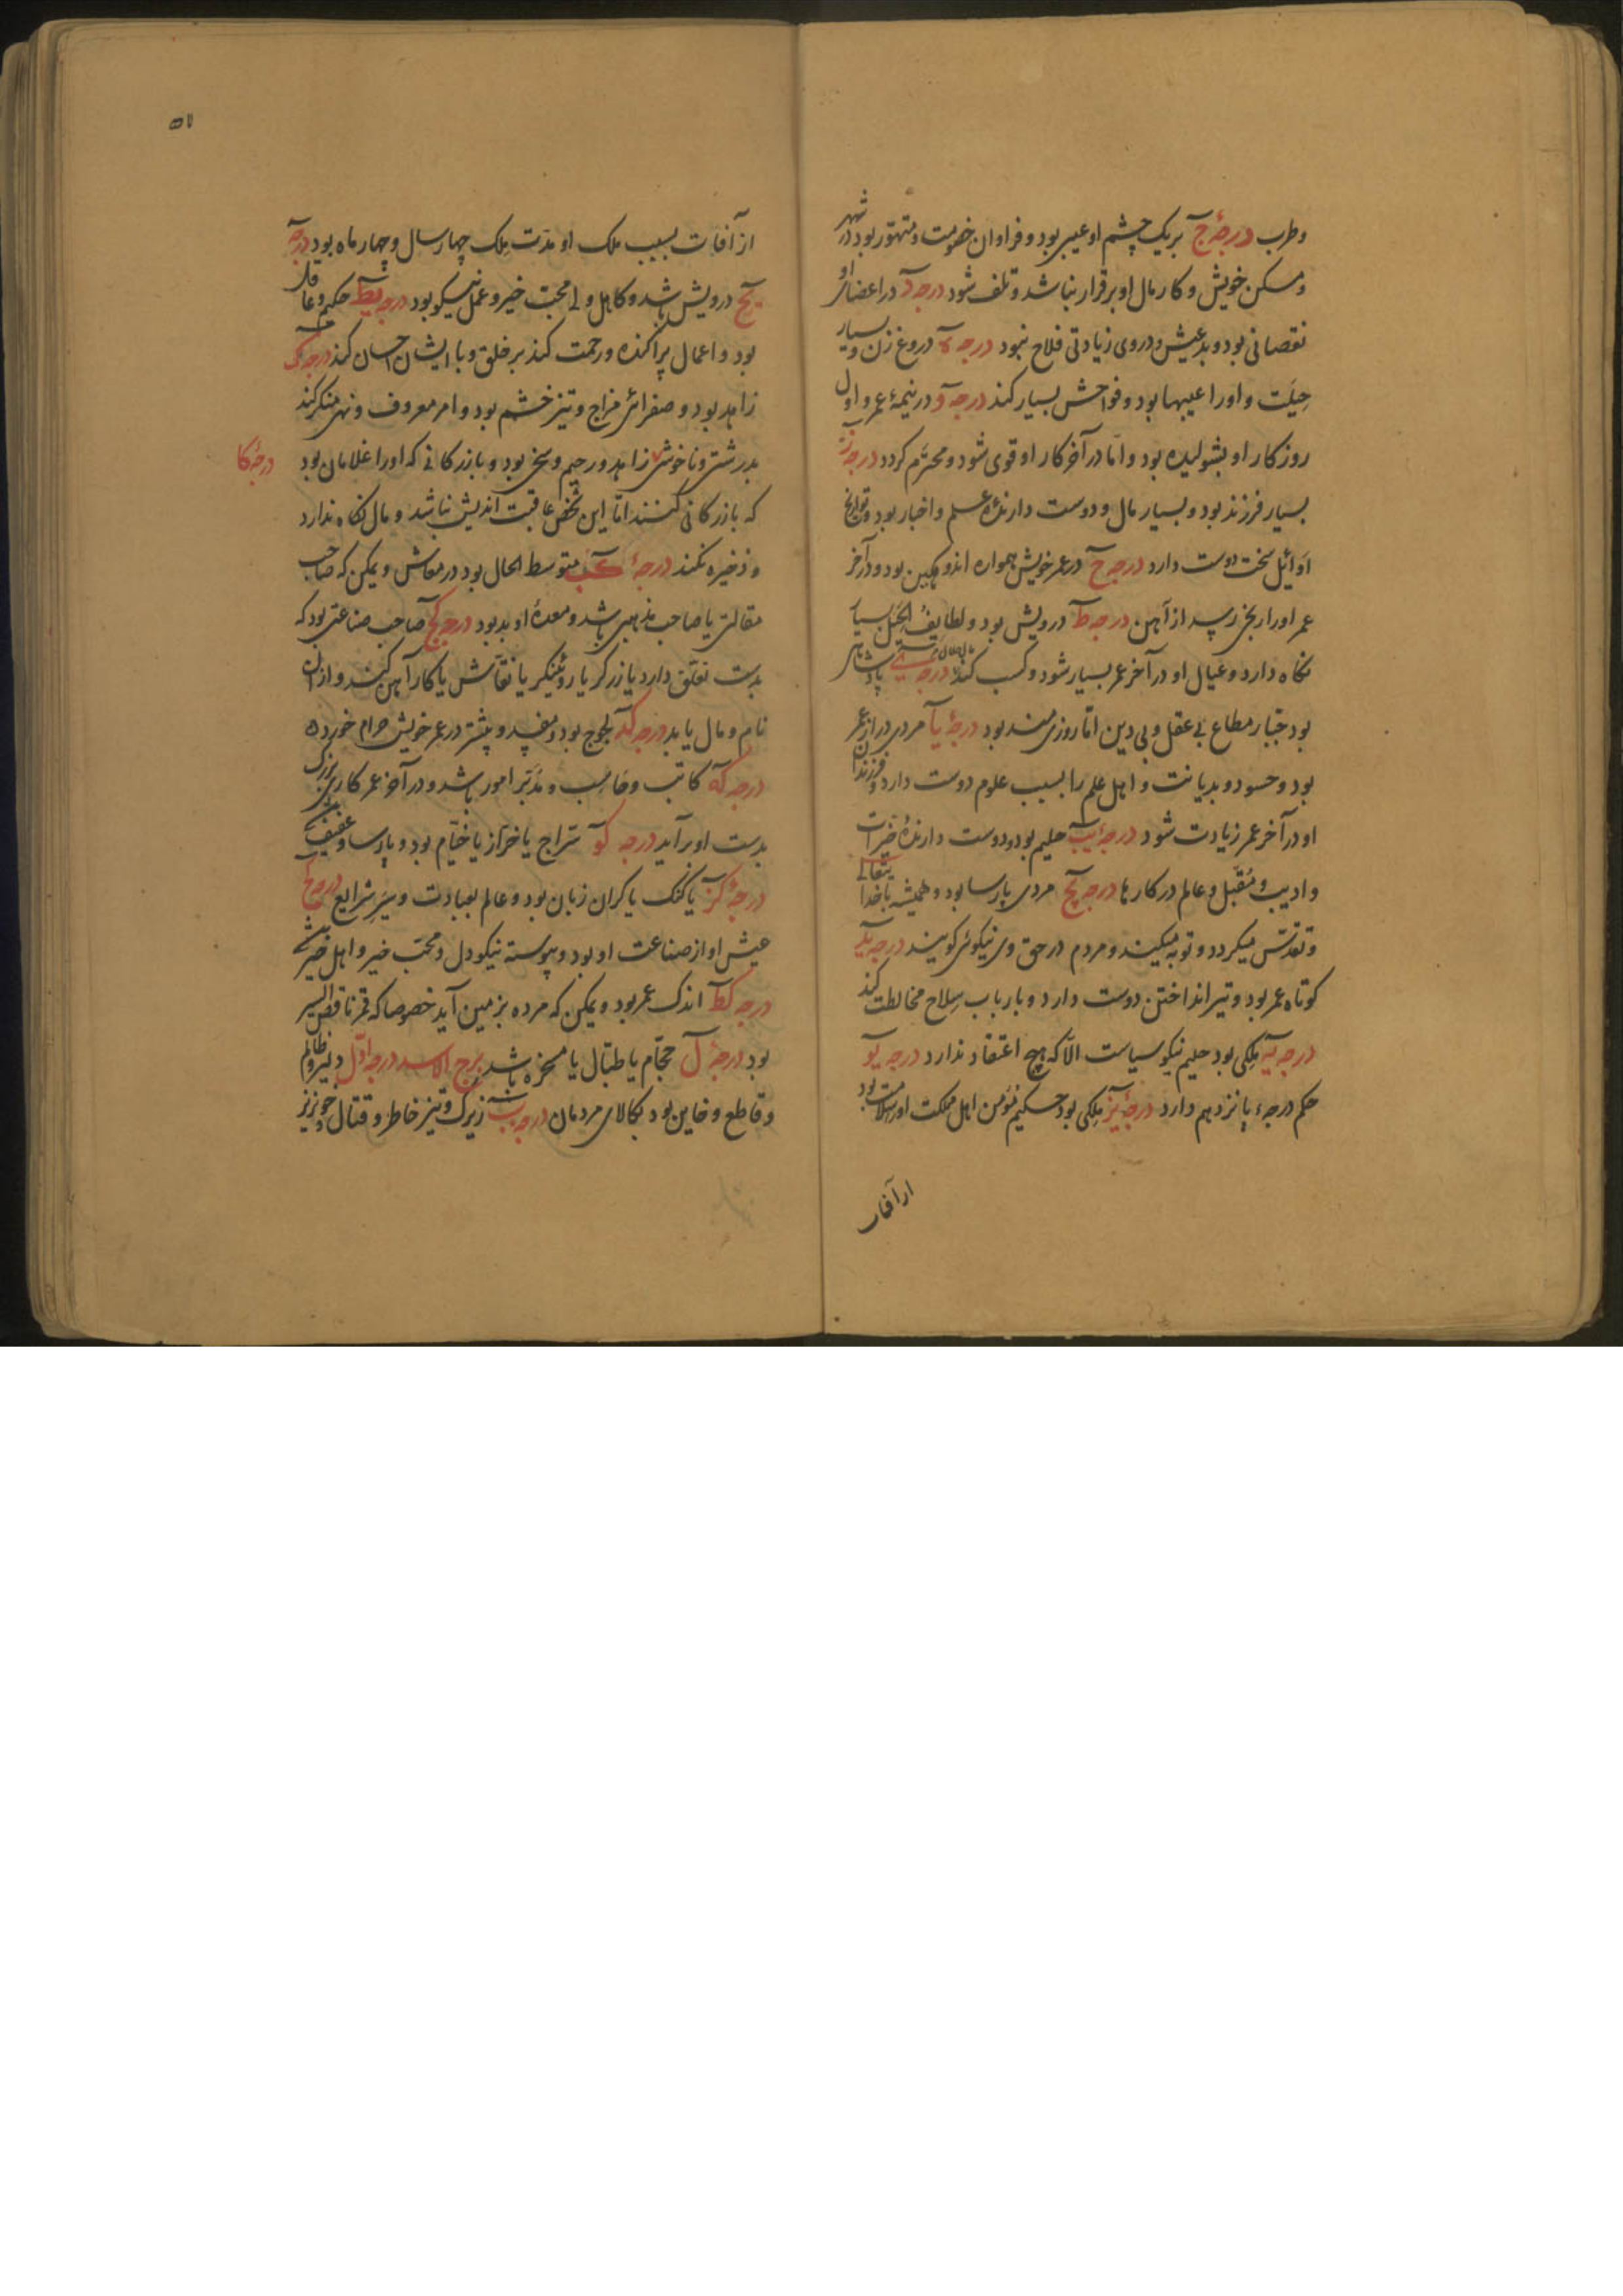 وطرب درجهٔ ج بریک چشم او عیبی بود و فراوان خصومت و متهوّر بود در شهر
و مسکن خویش و کار مال او برقرار نباشد و تلف شود درجه د در اعضای او
نقصانی بود و بدعیش و در وی زیادتی فلاح نبود درجه ه دروغ زن و بسیار
حیلت و او را عیبها بود و فواحش بسیار کند درجه و در نیمهٔ عمر و اول
روزکار او بشولیده بود و امّا در آخر کار او قوی شود و محترم کردد درجه ز
بسیار فرزند بود و بسیار مال و دوست دارندهٔ علم و اخبار بود و تواریخ
اوائل سخت دوست دارد درجه ح در عمر خویش همواره اندوهکین بود و در آخر
عمر او را رنجی رسد از آهن درجه ط درویش بود و لطایف الحیل بسیار
نکاه دارد و عیال او در آخر عمر بسیار شود و کسب کند درجه ی پادشاهی
بود جبّار مطاع بی عقل و بی دین امّا روزی مند بود درجهٔ یا مردی دراز عمر
بود و حسود و بدیانت و اهل علم را بسبب علوم دوست دارد و فرزندان
او در آخر عمر زیادت شود درجهٔ یب حلیم بود و دوست دارندهٔ خیرات
و ادیب و مقبل و عالم در کارها درجه یج مردی پارسا بود و همیشه با خدا یتعالی
و تقدّس میکردد و توبه میکیند و مردم در حق وی نیکوئی کویند درجه ید
کوتاه عمر بود و تیر انداختن دوست دارد و با ارباب سلاح مخالطت کند
درجه یه ملکی بود حلیم نیکو سیاست الّا که هیچ اعتقاد ندارد درجه یو
حکم درجهء پانزدهم دارد درجهٔ یز ملکی بود حکیم مؤمن اهل مملکت او بسلامت بود
از آفات
۵۷
از آفات بسبب ملک او مدّت ملک چهار سال و چهار ماه بود درجه
یح درویش باشد و کاهل ولی محبّ خیر و عمل نیکو بود درجه یط حکیم و عاقل
بود و اعمال پراکنده و رحمت کند بر خلق و با ایشان احسان کند درجه ک
زاهد بود و صفرائی مزاج و تیز خشم بود و امر معروف و نهی منکر کند
بدرشتی و ناخوشی زاهد و رحیم و سخی بود و بازرکانی که او را غلامان بود
درجهٔ کا
که بازرکانی کنند امّا این شخص عاقبت اندیش نباشد و مال نکاه ندارد
و ذخیره نکند درجهٔ کب متوسط الحال بود در معاش و یمکن که صاحب
مقالتی یا صاحب مذهبی باشد و معدهٔ او بد بود درجه کج صاحب صناعتی بود که
بدست تعلّق دارد یا زرکر یا روئینکر یا نقّاش یا کار آهن کند و از آن
نام و مال یابد درجه کد لجوج بود و مفسد و بیشتر در عمر خویش حرام خورد
درجه که کاتب و حاسب و مدبّر امور باشد و در آخر عمر کار بزرک
بدست او برآید درجه کو سرّاج یا خرّاز یا خیّام بود و پارسا و عفیف
درجهٔ کز یا کنک یا کران زبان بود و عالم بعبادت و سیر شرایع درجه کح
عیش او از صناعت او بود و پیوسته نیکو دل و محبّ خیر و اهل خیر باشد
درجه کط اندک عمر بود و یمکن که مرده بزمین آید خصوصا که قمر ناقص السیر
بود درجهٔ ل حجّام یا طبّال یا مسخره باشد برج الاسد درجه اوّل دلیر و ظالم
و قاطع و خاین بود بکالای مردمان درجه ب زیرک و تیز خاطر و قتّال خونریز